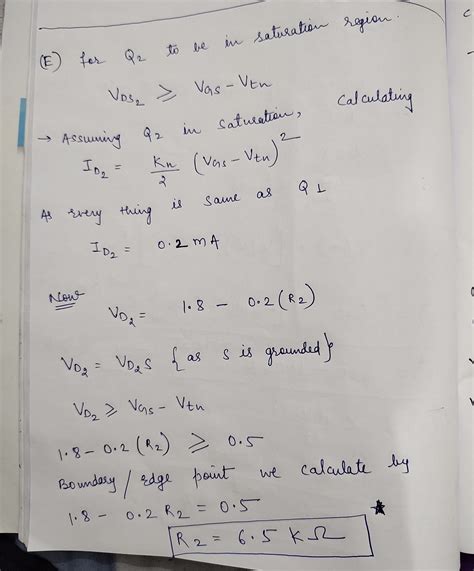 (E) for Q2 to be in saturation region.
VDS2 ⩾ VGS - Vtn
→ Assuming Q2 in saturation, calculating
ID2 = Kn/2 (VGS - Vtn)²
As every thing is same as Q1
ID2 = 0.2 mA
Now
VD2 = 1.8 - 0.2(R2)
VD2 = VD2S {as s is grounded}
VD2 ⩾ VGS - Vtn
1.8 - 0.2(R2) ⩾ 0.5
Boundary/edge point we calculate by
1.8 - 0.2 R2 = 0.5
R2 = 6.5 KΩ